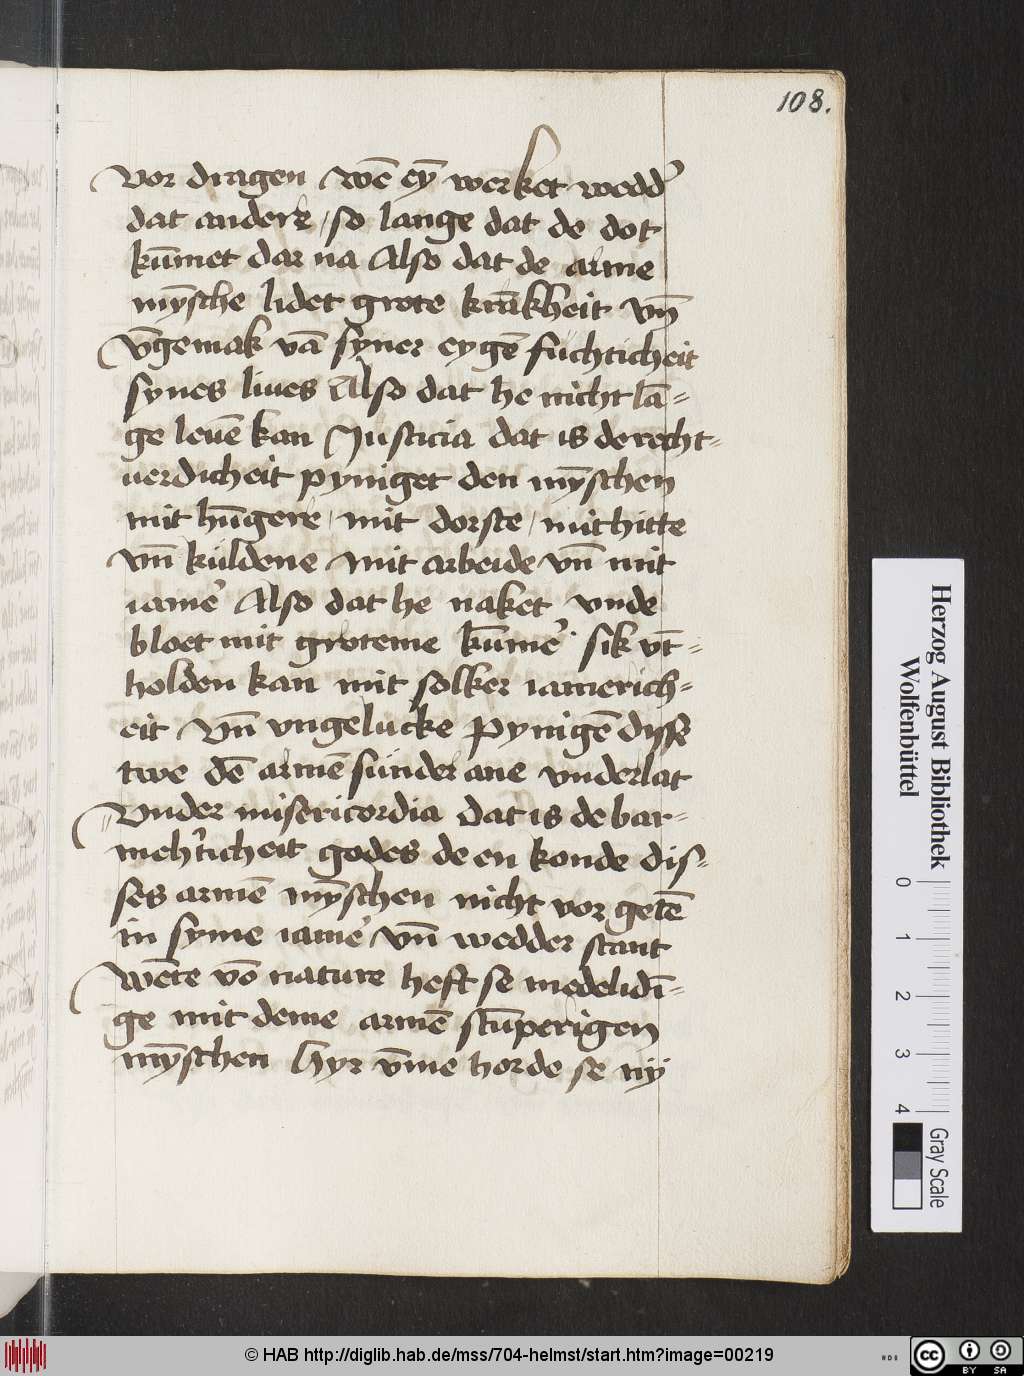 108.
vor dragen wē eȳ werket wedd᷑
dat andere / so lange dat de dot
kūmet dar na Also dat de arme
mȳsche lidet grote krākheit vn̄
v̄gemak vā syner eygē fuchticheit
synes liues Also dat he nicht lā=
ge leuē kan Justicia dat is de recht=
uerdicheit pyniget den mȳschen
mit hūgere / mit dorste / mit hitte
vn̄ küldene mit arbeide vn̄ mit
iame᷑ Also dat he naket vnde
bloet mit groteme kūme᷑ sik vt̄=
holden kan mit solker iamerich=
eit vn̄ vngelucke pynigē dysse
twe dē armē sünder ane vnderlat
Vnder misericordia dat is de bar=
meh᷑ticheit godes de en konde dis=
ses armē mȳschen nicht vor getē
in syme iame᷑ vn̄ wedder stant
wēte vō nature heft se medelidī=
ge mit deme armē stūperigen
mȳschen hyr v̄me horde se nÿ
Herzog August Bibliothek
Wolfenbüttel
0 1 2 3 4
Gray Scale
© HAB http://diglib.hab.de/mss/704-helmst/start.htm?image=00219
HAB
cc BY SA